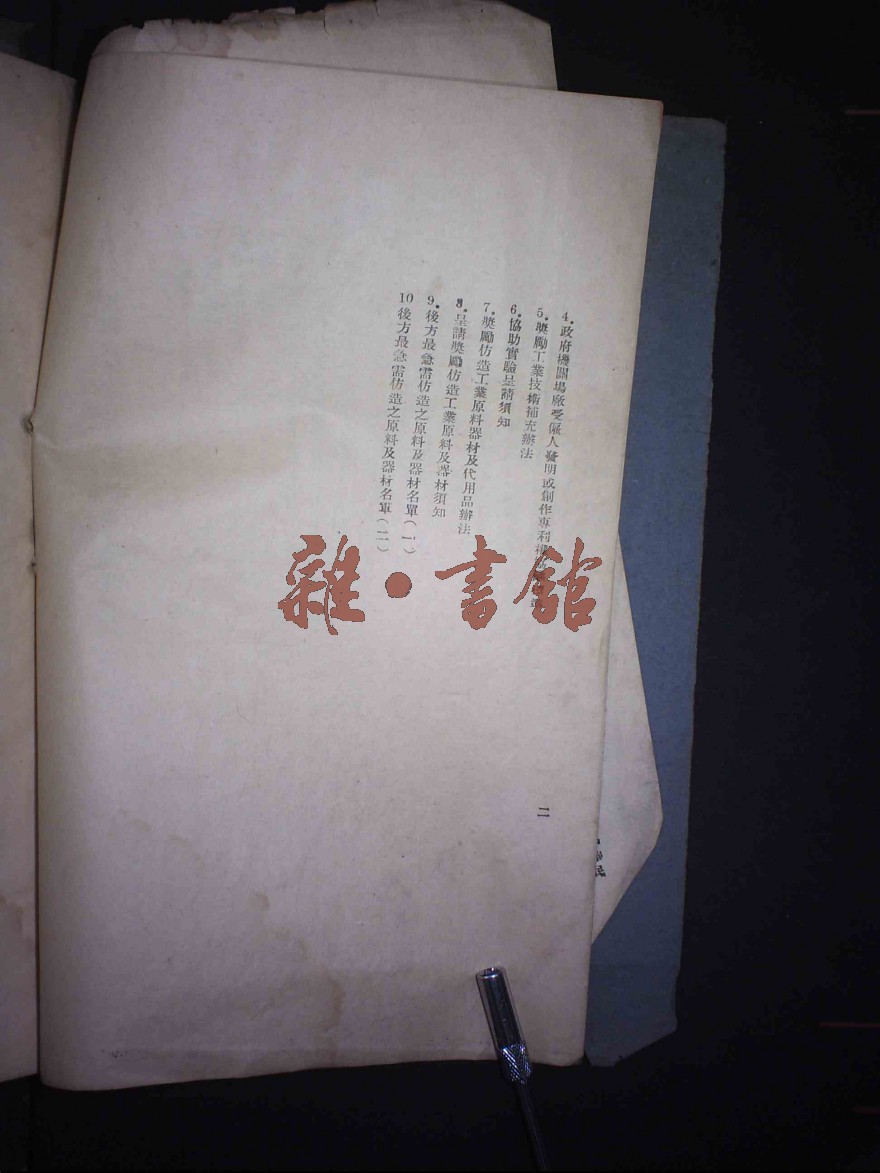 4.政府機關場廠受僱人發明或創作專利權
5.奬勵工業技術補充辦法
6.協助實驗呈請須知
7.奬勵仿造工業原料器材及代用品辦法
8.呈請奬勵仿造工業原料及器材須知
9.後方最急需仿造之原料及器材名單(一)
10後方最急需仿造之原料及器材名單(二)
二
雜·書館
民